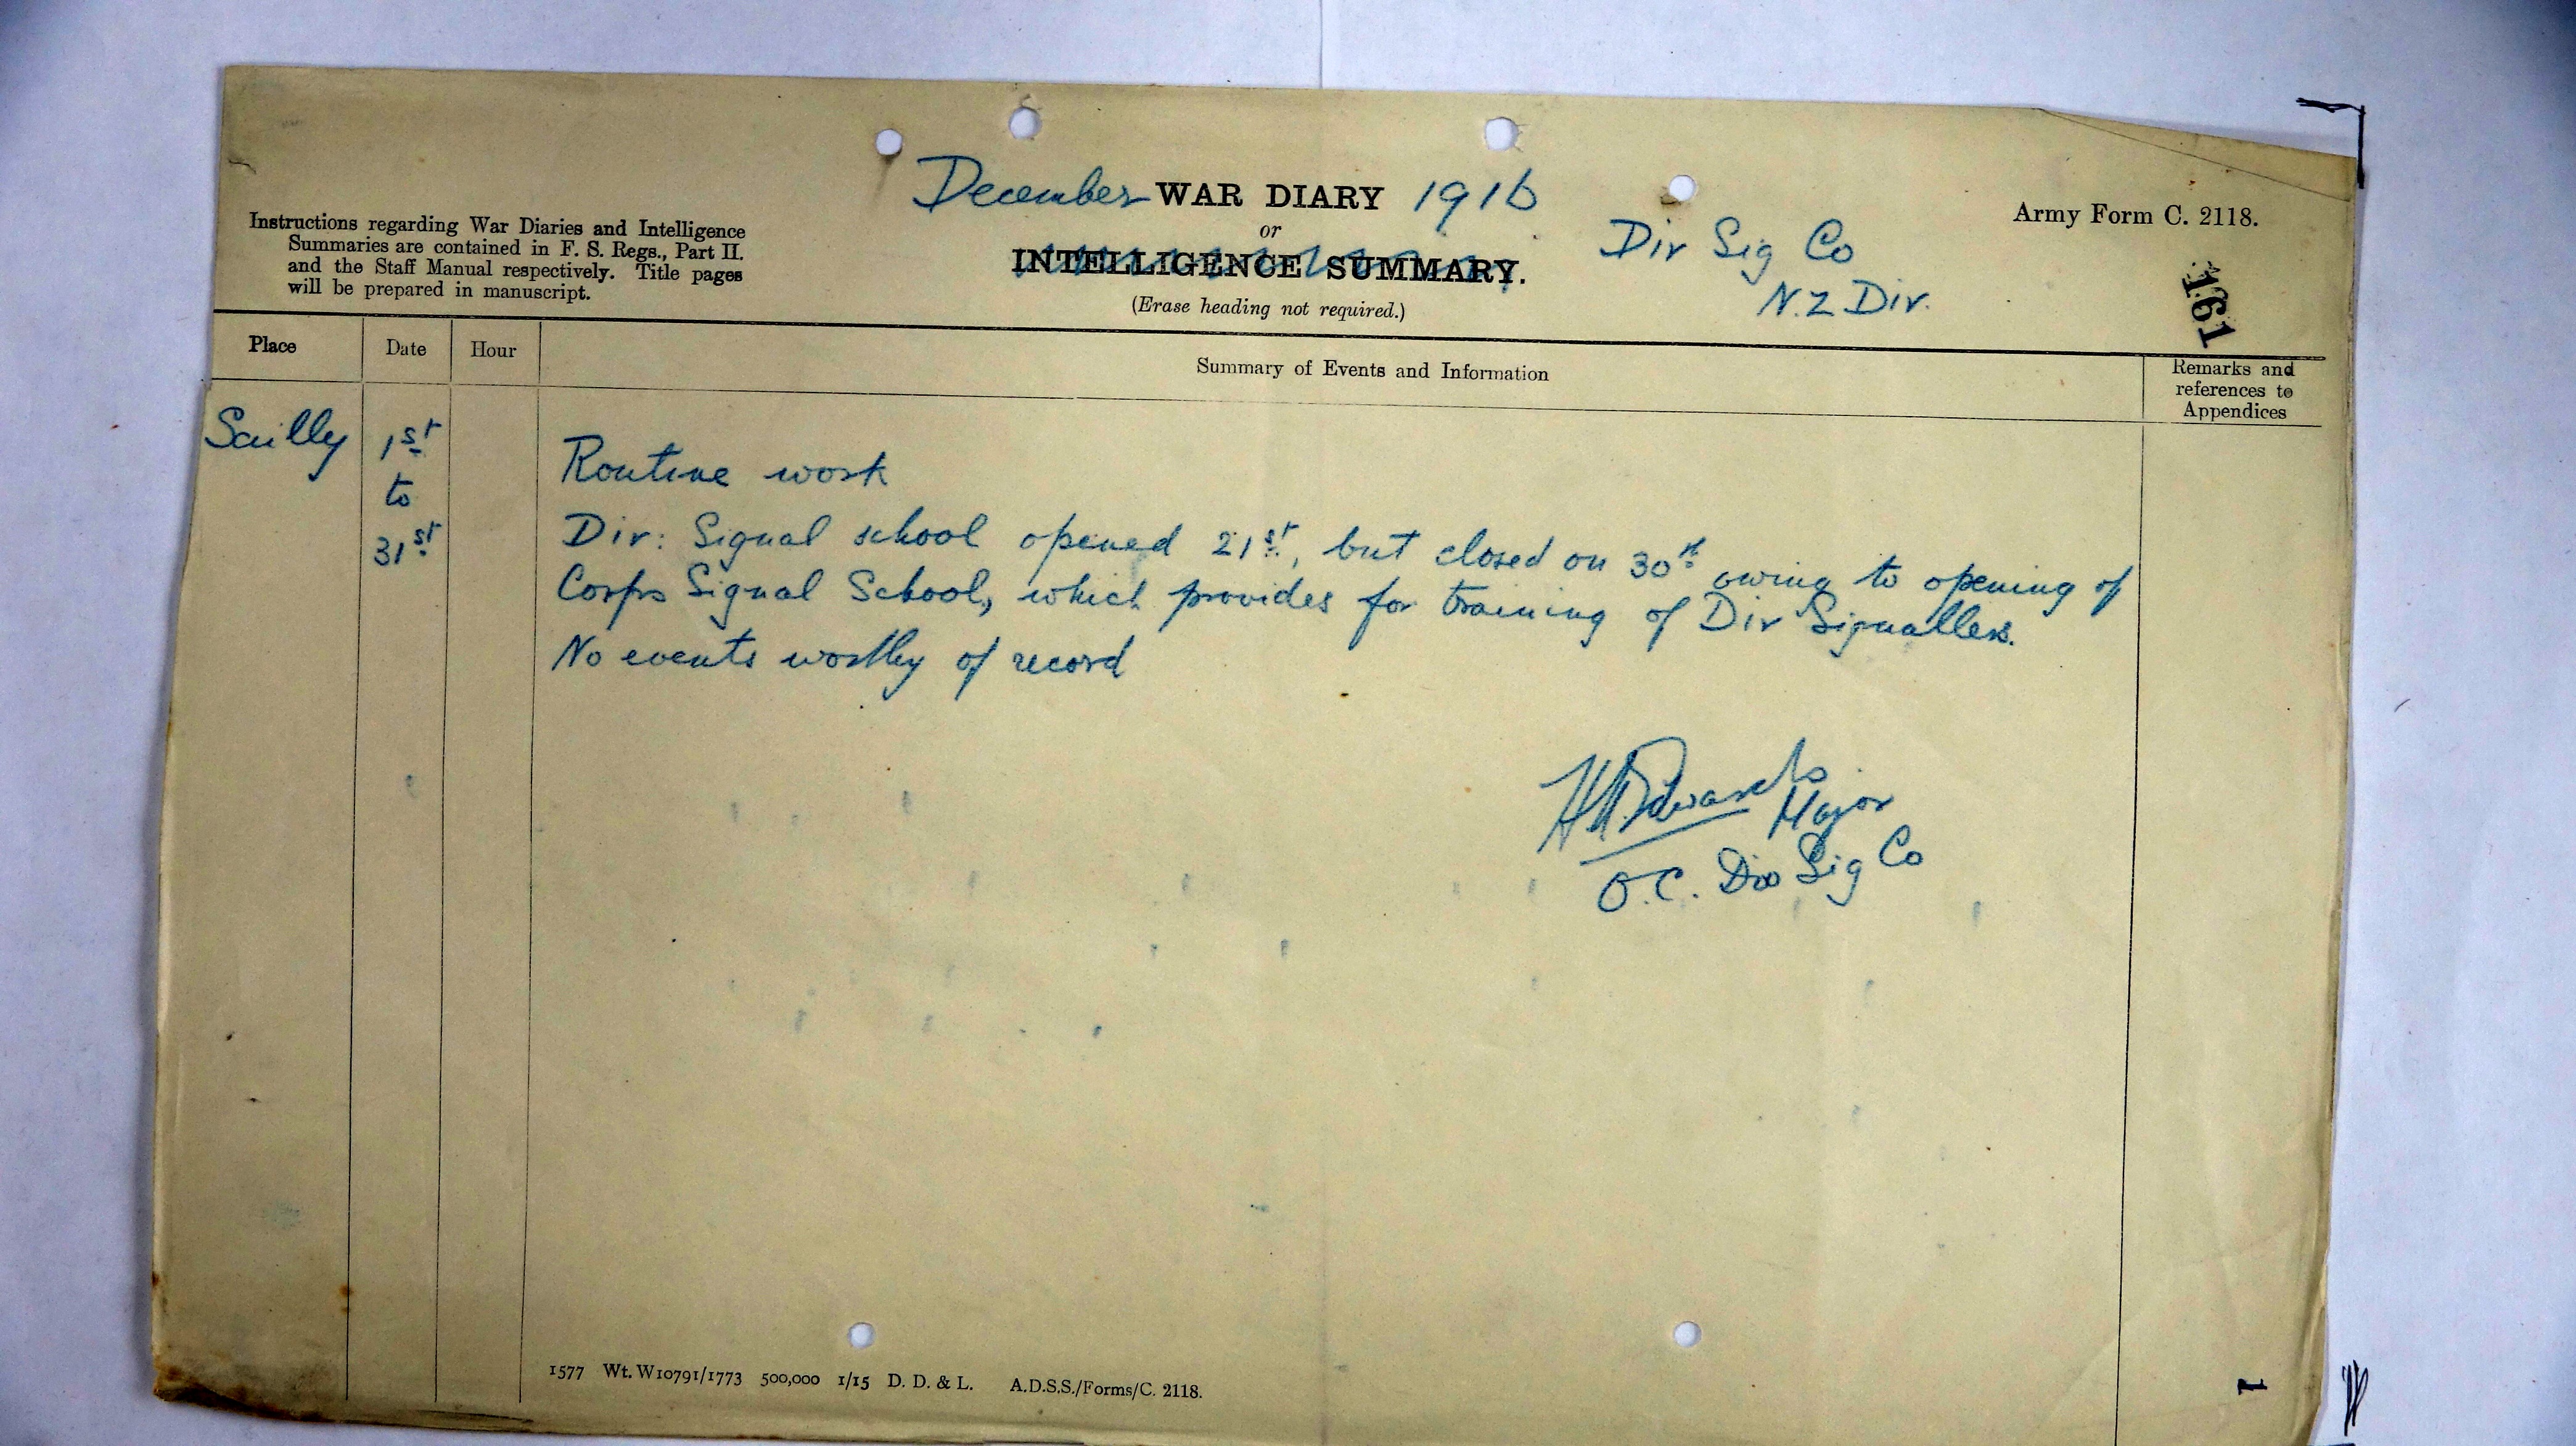 December WAR DIARY 1916
or
INTELLIGENCE SUMMARY.
(Erase heading not required.)
Instructions regarding War Diaries and Intelligence
Summaries are contained in F. S. Regs., Part II.
and the Staff Manual respectively. Title pages
will be prepared in manuscript.
Dir Sig Co
N.Z Div.
Army Form C. 2118.
161
Place Date Hour Summary of Events and Information Remarks and
references to
Appendices
Sailly 1st
to
31st
Routine work
Div: Signal school opened 21st, but closed on 30th owing to opening of
Corps Signal School, which provides for training of Div Signallers.
No events worthy of record
Edwards Major
O.C. Div Sig Co
1577 Wt. W10791/1773 500,000 1/15 D. D. & L. A.D.S.S./Forms/C. 2118.
1